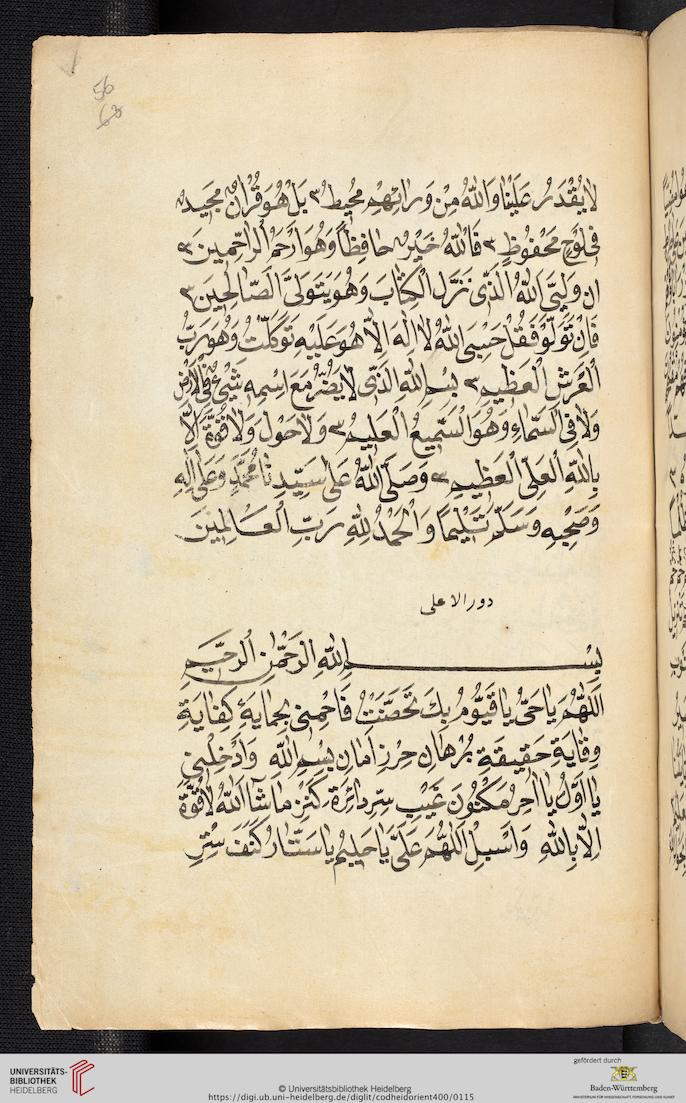 56
63
لا يُقْدَرُ عَلَيْنَا وَاللّٰهُ مِنْ وَرائِهِمْ مُحِيطٌ ٣ بَلْ هُوَ قُرْاٰنٌ مَجِيدٌ
فِي لَوْحٍ مَحْفُوظٍ ٣ فَاللّٰهُ خَيْرٌ حافِظاً وَهُوَ اَرْحَمُ الرّاحِمِينَ ٣
ان وَلِيِّيَ اللّٰهُ الَّذِي نَزَّلَ الْكِتَابَ وَهُوَ يَتَوَلَّى الصّالِحِينَ ٣
فَاِنْ تَوَلَّوْ فَقُلْ حَسْبِيَ اللّٰهُ لا اِلٰهَ اِلّا هُوَ عَلَيْهِ تَوَكَّلْتُ وَهُوَ رَبُّ
الْعَرْشِ الْعَظِيمِ ٣ بِسْمِ اللّٰهِ الَّذِي لا يَضُرُّ مَعَ اسْمِهِ شَيْئٌ فِي الْاَرْضِ
وَلا فِي السَّمَاءِ وَهُوَ السَّمِيعُ الْعَلِيمُ ٣ وَلا حَوْلَ وَلا قُوَّةَ اِلّا
بِاللّٰهِ الْعَلِيِّ الْعَظِيمِ ٣ وَصَلَّى اللّٰهُ عَلٰى سَيِّدِنَا مُحَمَّدٍ وَعَلٰى اٰلِهِ
وَصَحْبِهِ وَسَلَّمَ تَسْلِيماً وَالْحَمْدُ لِلّٰهِ رَبِّ الْعَالَمِينَ
دور الاعلى
بِسْمِ اللّٰهِ الرَّحْمٰنِ الرَّحِيمِ
اَللّٰهُمَّ يَا حَيُّ يَا قَيُّومُ بِكَ تَحَصَّنْتُ فَاحْمِنِي بِحِمَايَةِ كِفَايَةِ
وِقَايَةِ حَقِيقَةِ بُرْهَانِ حِرْزِ اَمَانِ بِسْمِ اللّٰهِ وَاَدْخِلْنِي
يَا اَوَّلُ يَا اٰخِرُ مَكْنُونَ غَيْبِ سِرِّ دائِرَةِ كَنْزِ ما شَآءَ اللّٰهُ لا قُوَّةَ
اِلّا بِاللّٰهِ وَاَسْبِلْ اَللّٰهُمَّ عَلَيَّ يَا حَلِيمُ يَا سَتَّارُ كَنَفَ سِتْرِ
UNIVERSITÄTS-
BIBLIOTHEK
HEIDELBERG
© Universitätsbibliothek Heidelberg
https://digi.ub.uni-heidelberg.de/diglit/codheidorient400/0115
gefördert durch
Baden-Württemberg
MINISTERIUM FÜR WISSENSCHAFT, FORSCHUNG UND KUNST